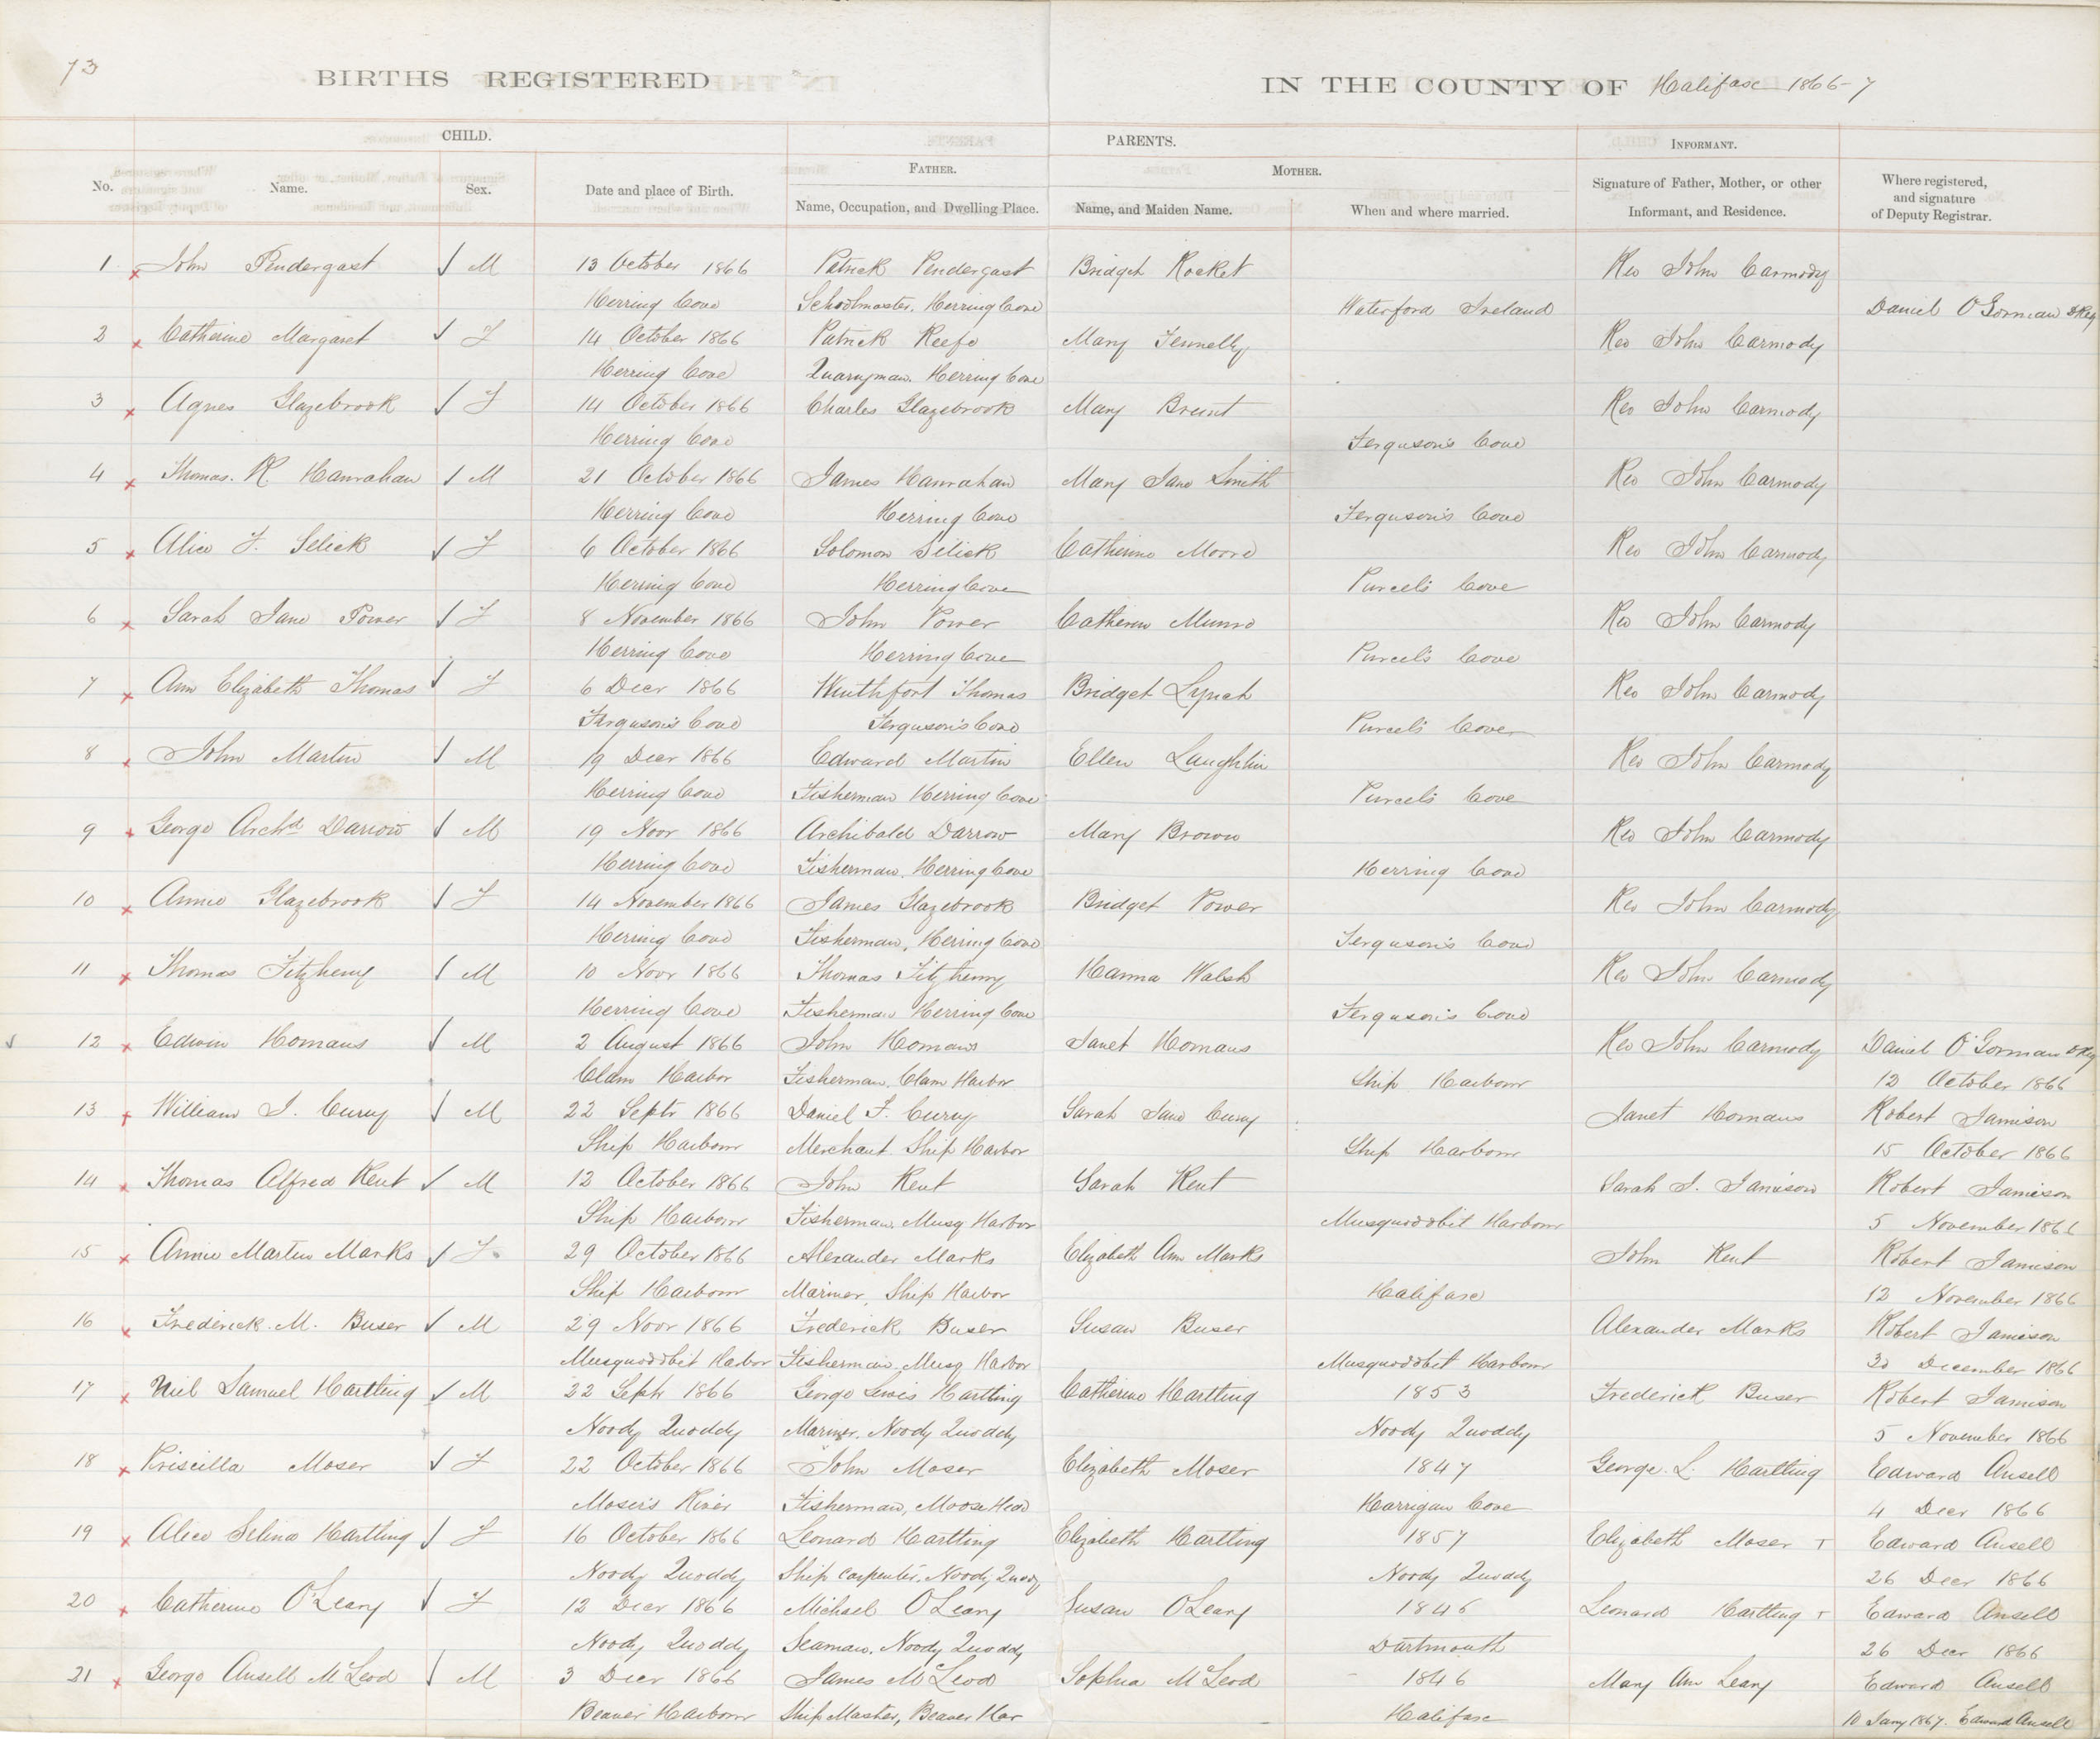 73
BIRTHS REGISTERED IN THE COUNTY OF Halifax 1866-7
CHILD. PARENTS. INFORMANT.
FATHER. MOTHER.
No. Name. Sex. Date and place of Birth. Name, Occupation, and Dwelling Place. Name, and Maiden Name. When and where married. Signature of Father, Mother, or other Informant, and Residence. Where registered, and signature of Deputy Registrar.
1 John Pendergast M 13 October 1866 Patrick Pendergast Bridget Rocket Rev John Carmody
Herring Cove Schoolmaster. Herring Cove Waterford Ireland Daniel O'Gorman
2 Catherine Margaret F 14 October 1866 Patrick Keefe Mary Fennelly Rev John Carmody
Herring Cove Quaryman. Herring Cove
3 Agnes Glazebrook F 14 October 1866 Charles Glazebrook Mary Brunt Rev John Carmody
Herring Cove Ferguson's Cove
4 Thomas. R Hanrahan M 21 October 1866 James Hanrahan Mary Jane Smith Rev John Carmody
Herring Cove Herring Cove Ferguson's Cove
5 Alice F. Selick F 6 October 1866 Solomon Selick Catherine Moore Rev John Carmody
Herring Cove Herring Cove Purcel's Cove
6 Sarah Jane Power F 8 November 1866 John Power Catherine Munro Rev John Carmody
Herring Cove Herring Cove Purcel's Cove
7 Ann Elizabeth Thomas F 6 Decr 1866 Thomas Bridget Lynch Rev John Carmody
Ferguson's Cove Ferguson's Cove Purcel's Cove
8 John Martin M 19 Decr 1866 Edward Martin Ellen Laughlin Rev John Carmody
Herring Cove Fisherman Herring Cove Purcel's Cove
9 George Archd Darrow M 19 Novr 1866 Archibald Darrow Mary Brown Rev John Carmody
Herring Cove Fisherman. Herring Cove Herring Cove
10 Annie Glazebrook F 14 November 1866 James Glazebrook Bridget Power Rev John Carmody
Herring Cove Fisherman, Herring Cove Ferguson's Cove
11 Thomas Fitzhenry M 10 Novr 1866 Thomas Fitzhenry Hanna Walsh Rev John Carmody
Herring Cove Fisherman Herring Cove Ferguson's Cove
12 Edwin Homans M 2 August 1866 John Homans Janet Homans Rev John Carmody Daniel O'Gorman
Clam Harbor Fisherman. Clam Harbor Ship Harbour 12 October 1866
13 William J. Curry M 22 Septr 1866 Daniel F. Curry Sarah Jane Curry Janet Homans Robert Jamison
Ship Harbour Merchant. Ship Harbor Ship Harbour 15 October 1866
14 Thomas Alfred Kent M 12 October 1866 John Kent Sarah Kent Sarah J. Jamison Robert Jamison
Ship Harbour Fisherman, Musq Harbor Musquodobit Harbour 5 November 1866
15 Annie Martin Marks F. 29 October 1866 Alexander Marks Elizabeth Ann Marks John Kent Robert Jamison
Ship Harbour Mariner, Ship Harbor Halifax 12 November 1866
16 Frederick. M. Buser M 29 Novr 1866 Frederick Buser Susan Buser Alexander Marks Robert Jamison
Musquodobit Harbor Fisherman. Musq Harbor Musquodobit Harbour December 1866
17 Niel Samuel Hartling M 22 Septr 1866 George Lewis Hartling Catherine Hartling 1853 Frederick Buser Robert Jamison
Noody Quoddy Mariner. Noody Quoddy Noody Quoddy 5 November 1866
18 Priscilla Moser F 22 October 1866 John Moser Elizabeth Moser 1847 George. L. Hartling Edward Ansell
Moser's River Fisherman, Moose Head Harrigan Cove 4 Decr 1866
19 Alice Selina Hartling F 16 October 1866 Leonard Hartling Elizabeth Hartling 1857 Elizabeth Moser Edward Ansell
Noody Quoddy Ship Carpenter. Noody Quody Noody Quoddy 26 Decr 1866
20 Catherine O'Leary F 12 Decr 1866 Michael O'Leary Susan O'Leary 1846 Leonard Hartling Edward Ansell
Noody Quoddy Seaman. Noody Quoddy Dartmouth 26 Decr 1866
21 George Ansell McLeod M 3 Decr 1866 James McLeod Sophia McLeod 1846 Mary Ann Leary Edward Ansell
Beaver Harbour Ship Master, Beaver Har Halifax 10 Jany 1867. Edward Ansell